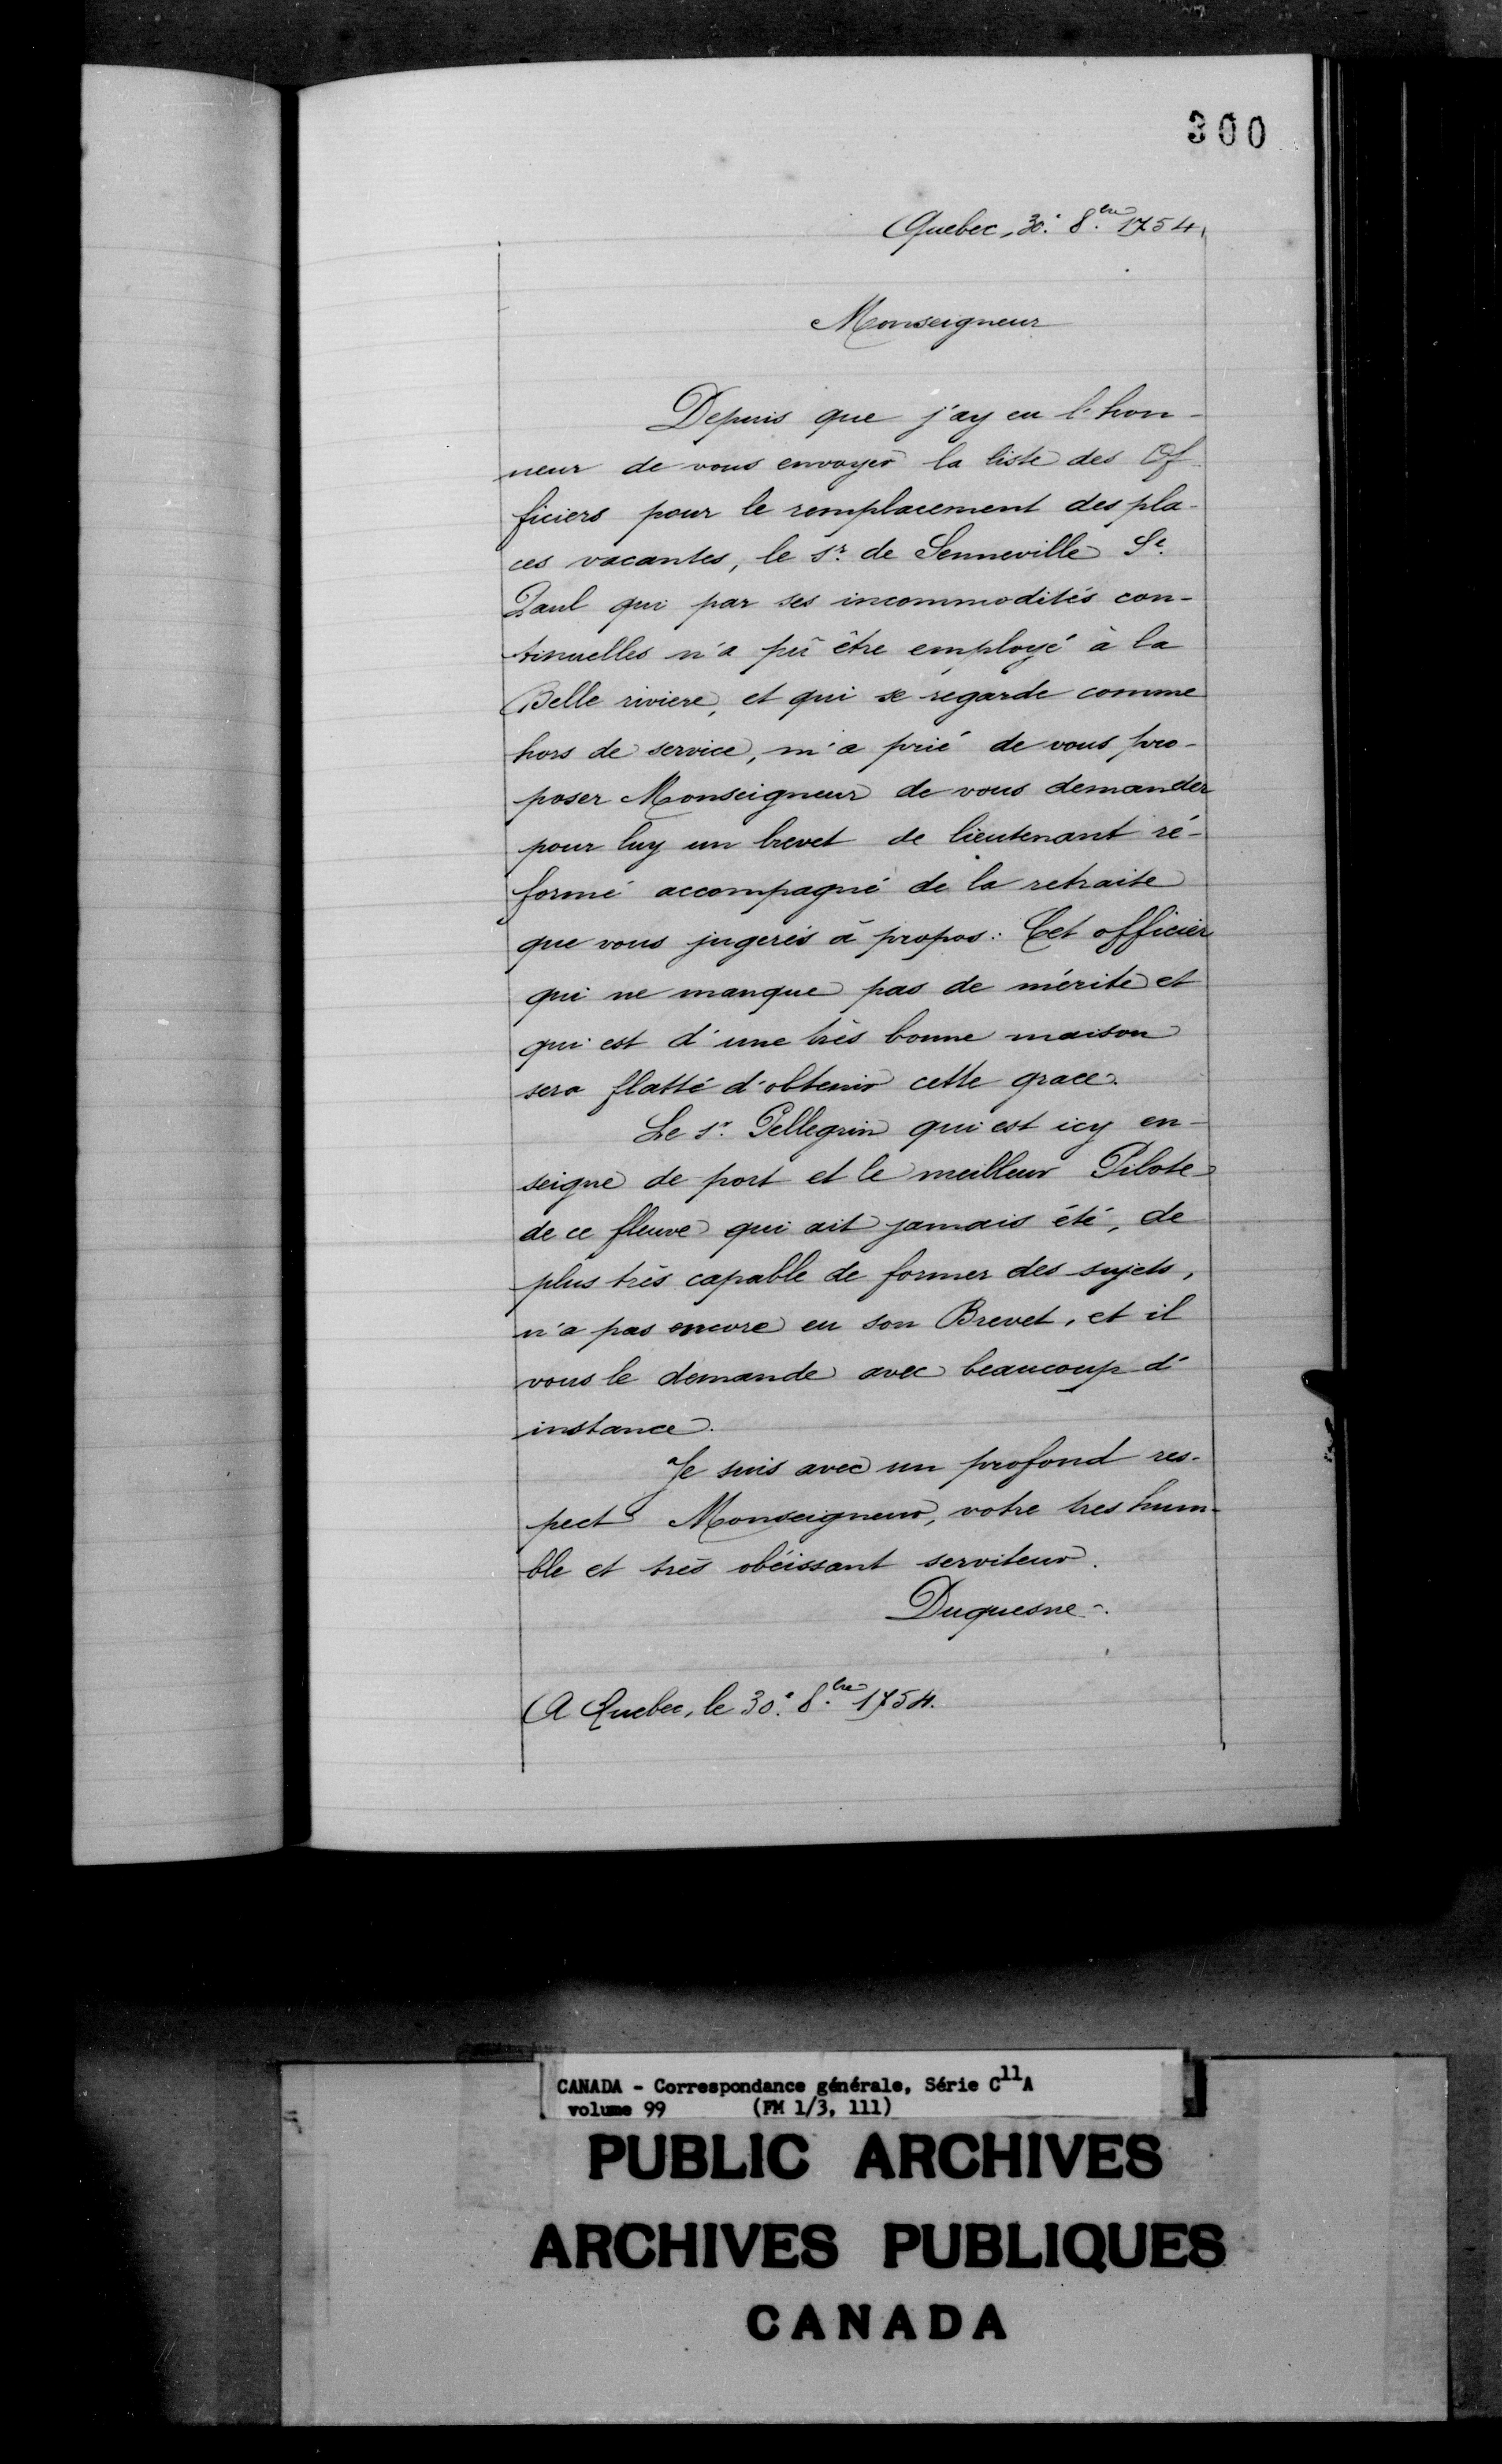 300
Quebec, 30. 8.bre 1754.
Monseigneur
Depuis que j'ay eu l'hon-
neur de vous envoyer la liste des Of
ficiers pour le remplacement des pla-
ces vacantes, le sr. de Senneville St.
Paul qui par ses incommodités con-
tinuelles n'a pû être employé à la
Belle riviere, et qui se regarde comme
hors de service, m'a prié de vous pro-
poser Monseigneur de vous demander
pour luy un brevet de lieutenant ré-
formé accompagné de la retraite
que vous jugerés à propos: Cet officier
qui ne manque pas de mérite et
qui est d'une très bonne maison
sera flatté d'obtenir cette grace.
Le sr. Pellegrin qui est icy en-
seigne de port et le meilleur Pilote
de ce fleuve qui ait jamais été, de
plus très capable de former des sujets,
n'a pas encore eu son Brevet, et il
vous le demande avec beaucoup d'
instance.
Je suis avec un profond res-
pect Monseigneur, votre tres hum-
ble et très obéissant serviteur.
Duquesne-.
A Quebec, le 30. 8.bre 1754.
CANADA - Correspondance générale, Série C11A
volume 99 (FM 1/3, 111)
PUBLIC ARCHIVES
ARCHIVES PUBLIQUES
CANADA